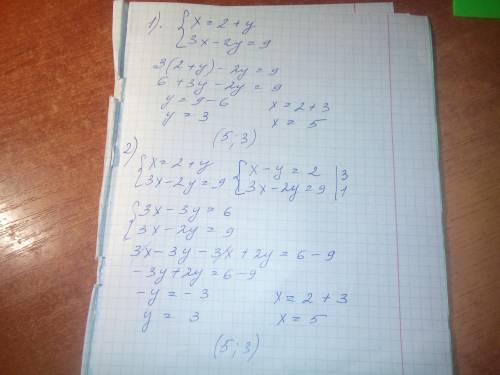 1). { x = 2 + y
3x - 2y = 9
3(2 + y) - 2y = 9
6 + 3y - 2y = 9
y = 9 - 6 x = 2 + 3
y = 3 x = 5
(5; 3)
2) { x = 2 + y { x - y = 2 | 3
3x - 2y = 9 3x - 2y = 9 | 1
{ 3x - 3y = 6
3x - 2y = 9
3x - 3y - 3x + 2y = 6 - 9
-3y + 2y = 6 - 9
-y = -3 x = 2 + 3
y = 3 x = 5
(5; 3)